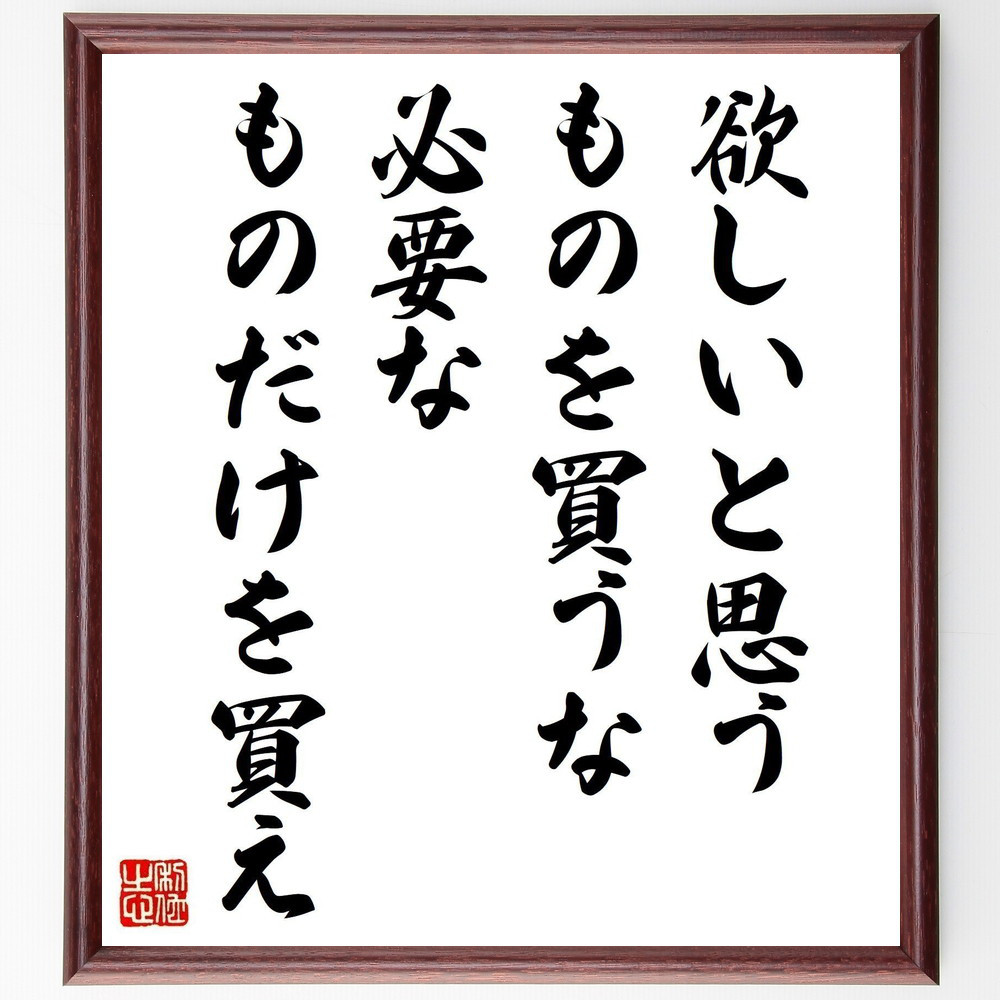 欲しいと思う
ものを買うな
必要な
ものだけを買え